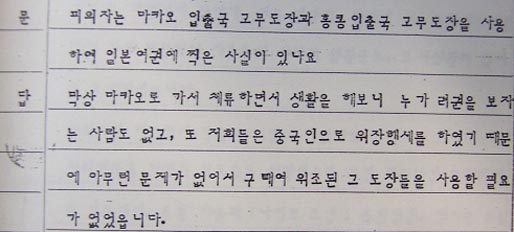 문 피의자는 마카오 입출국 고무도장과 홍콩입출국 고무도장을 사용
하여 일본여권에 찍은 사실이 있나요
답 막상 마카오로 가서 체류하면서 생활을 해보니 누가 려권을 보자
는 사람도 없고, 또 저희들은 중국인으로 위장행세를 하였기 때문
에 아무런 문제가 없어서 구태여 위조된 그 도장들을 사용할 필요
가 없었읍니다.